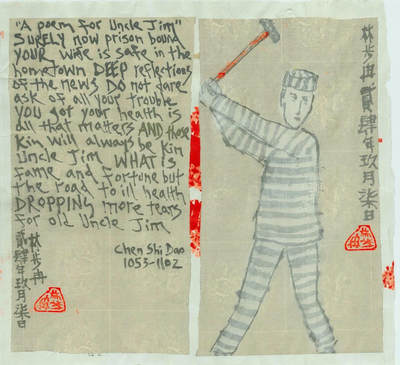 "A poem for Uncle Jim"
SURELY now prison bound
YOUR wife is safe in the
hometown DEEP reflections
of the news DO not dare
ask of all your trouble
YOU got your health is
all that matters AND those
Kin will always be kin
Uncle Jim WHAT is
fame and fortune but
the road to ill health
DROPPING more tears
for old Uncle Jim
Chen Shi Dao
1053-1102
林步冉
貳肆年玖月柒日
林步冉貳肆年玖月柒日